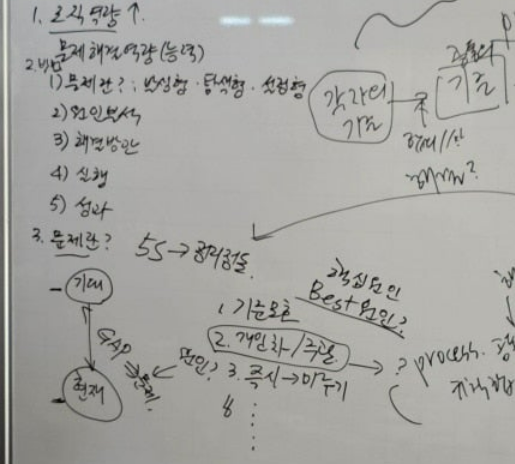 1. 조직역량 ↑.
문제해결역량(능력)
2. 방법
1) 문제란? : 발생형 · 탐색형 · 설정형
2) 원인분석
3) 해결방안
4) 실행
5) 성과
3. 문제란?
5S → 정리정돈.
기대
GAP
현재
⇒ 문제.
원인?
1. 기준모호
2. 개인차/주관
3. 즉시 → 미루기
핵심원인
Best 원인?
→ ? process.
각자의
기준
기준